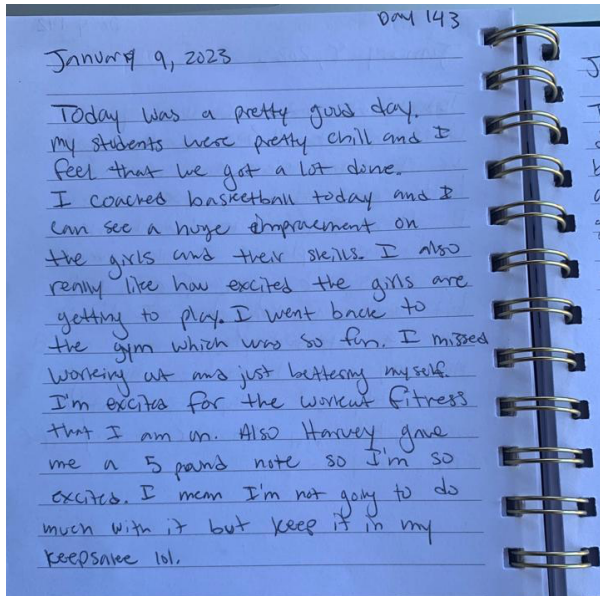 Day 143
January 9, 2023
Today was a pretty good day.
my students were pretty chill and I
feel that we got a lot done.
I coached basketball today and I
can see a huge improvement on
the girls and their skills. I also
really like how excited the girls are
getting to play. I went back to
the gym which was so fun. I missed
working out and just bettering myself.
I'm excited for the workout fitness
that I am on. Also Harvey gave
me a 5 pound note so I'm so
excited. I mean I'm not going to do
much with it but keep it in my
keepsake lol.